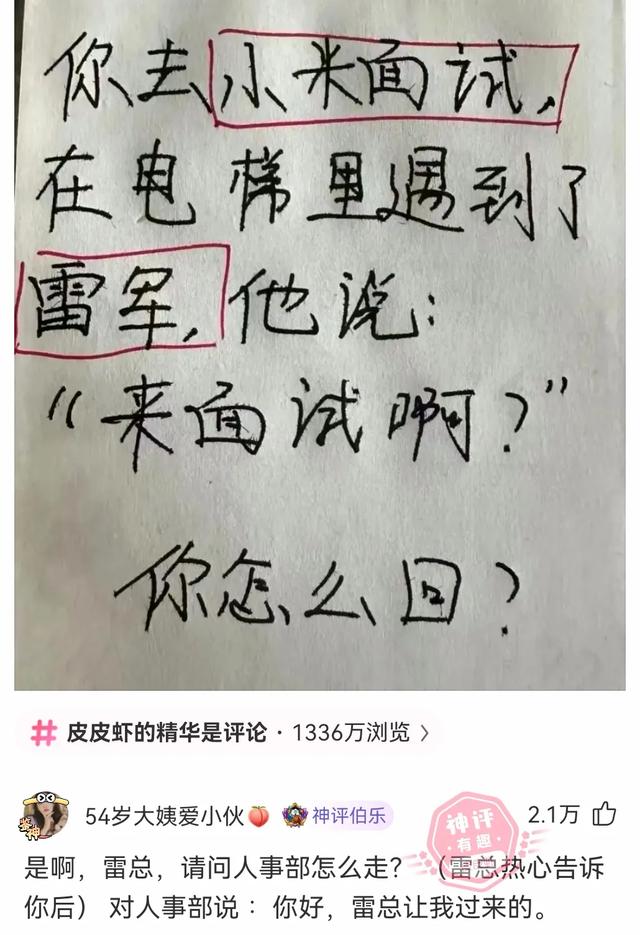 你去小米面试,
在电梯里遇到了
雷军,他说:
“来面试啊?”
你怎么回?
#皮皮虾的精华是评论 · 1336万浏览 >
54岁大姨爱小伙🍑 神评伯乐 2.1万
神评
有趣
是啊，雷总，请问人事部怎么走？（雷总热心告诉
你后）对人事部说：你好，雷总让我过来的。